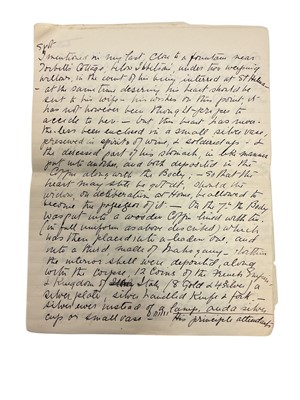 I mentioned in my last, close to a fountain near
Torbetts Cottage, below Hibilini, under two weeping
willows, in the event of his being interred at St Helena
- at the same time desiring his heart should be
sent to his wife - his wishes on this point it
has not however been thought proper to
accede to here - but this heart has never
the less been enclosed in a small silver vase,
preserved in spirits of wine, & soldered up - &
the diseased part of his stomach, in like manner
put into another, and both deposited in the
Coffin along with the Body; - so that the
heart may still be got at, should the
widow on deliberation at Home, be allowed to
become the possessor of it - On the 7th the Body
was put into a wooden Coffin lined with tin,
(in full uniform as above described) which
was then placed into a leaden one, and
into a third, made of mahogany - Within
the interior shell were deposited, along
with the corpse, 12 coins of the French Empire
& Kingdom of Italy, (8 Gold & 4 Silver) a
silver plate, silver handled Knife & fork -
silver ewer instead of a lamp, and a silver
cup or small vase - his principle attendants